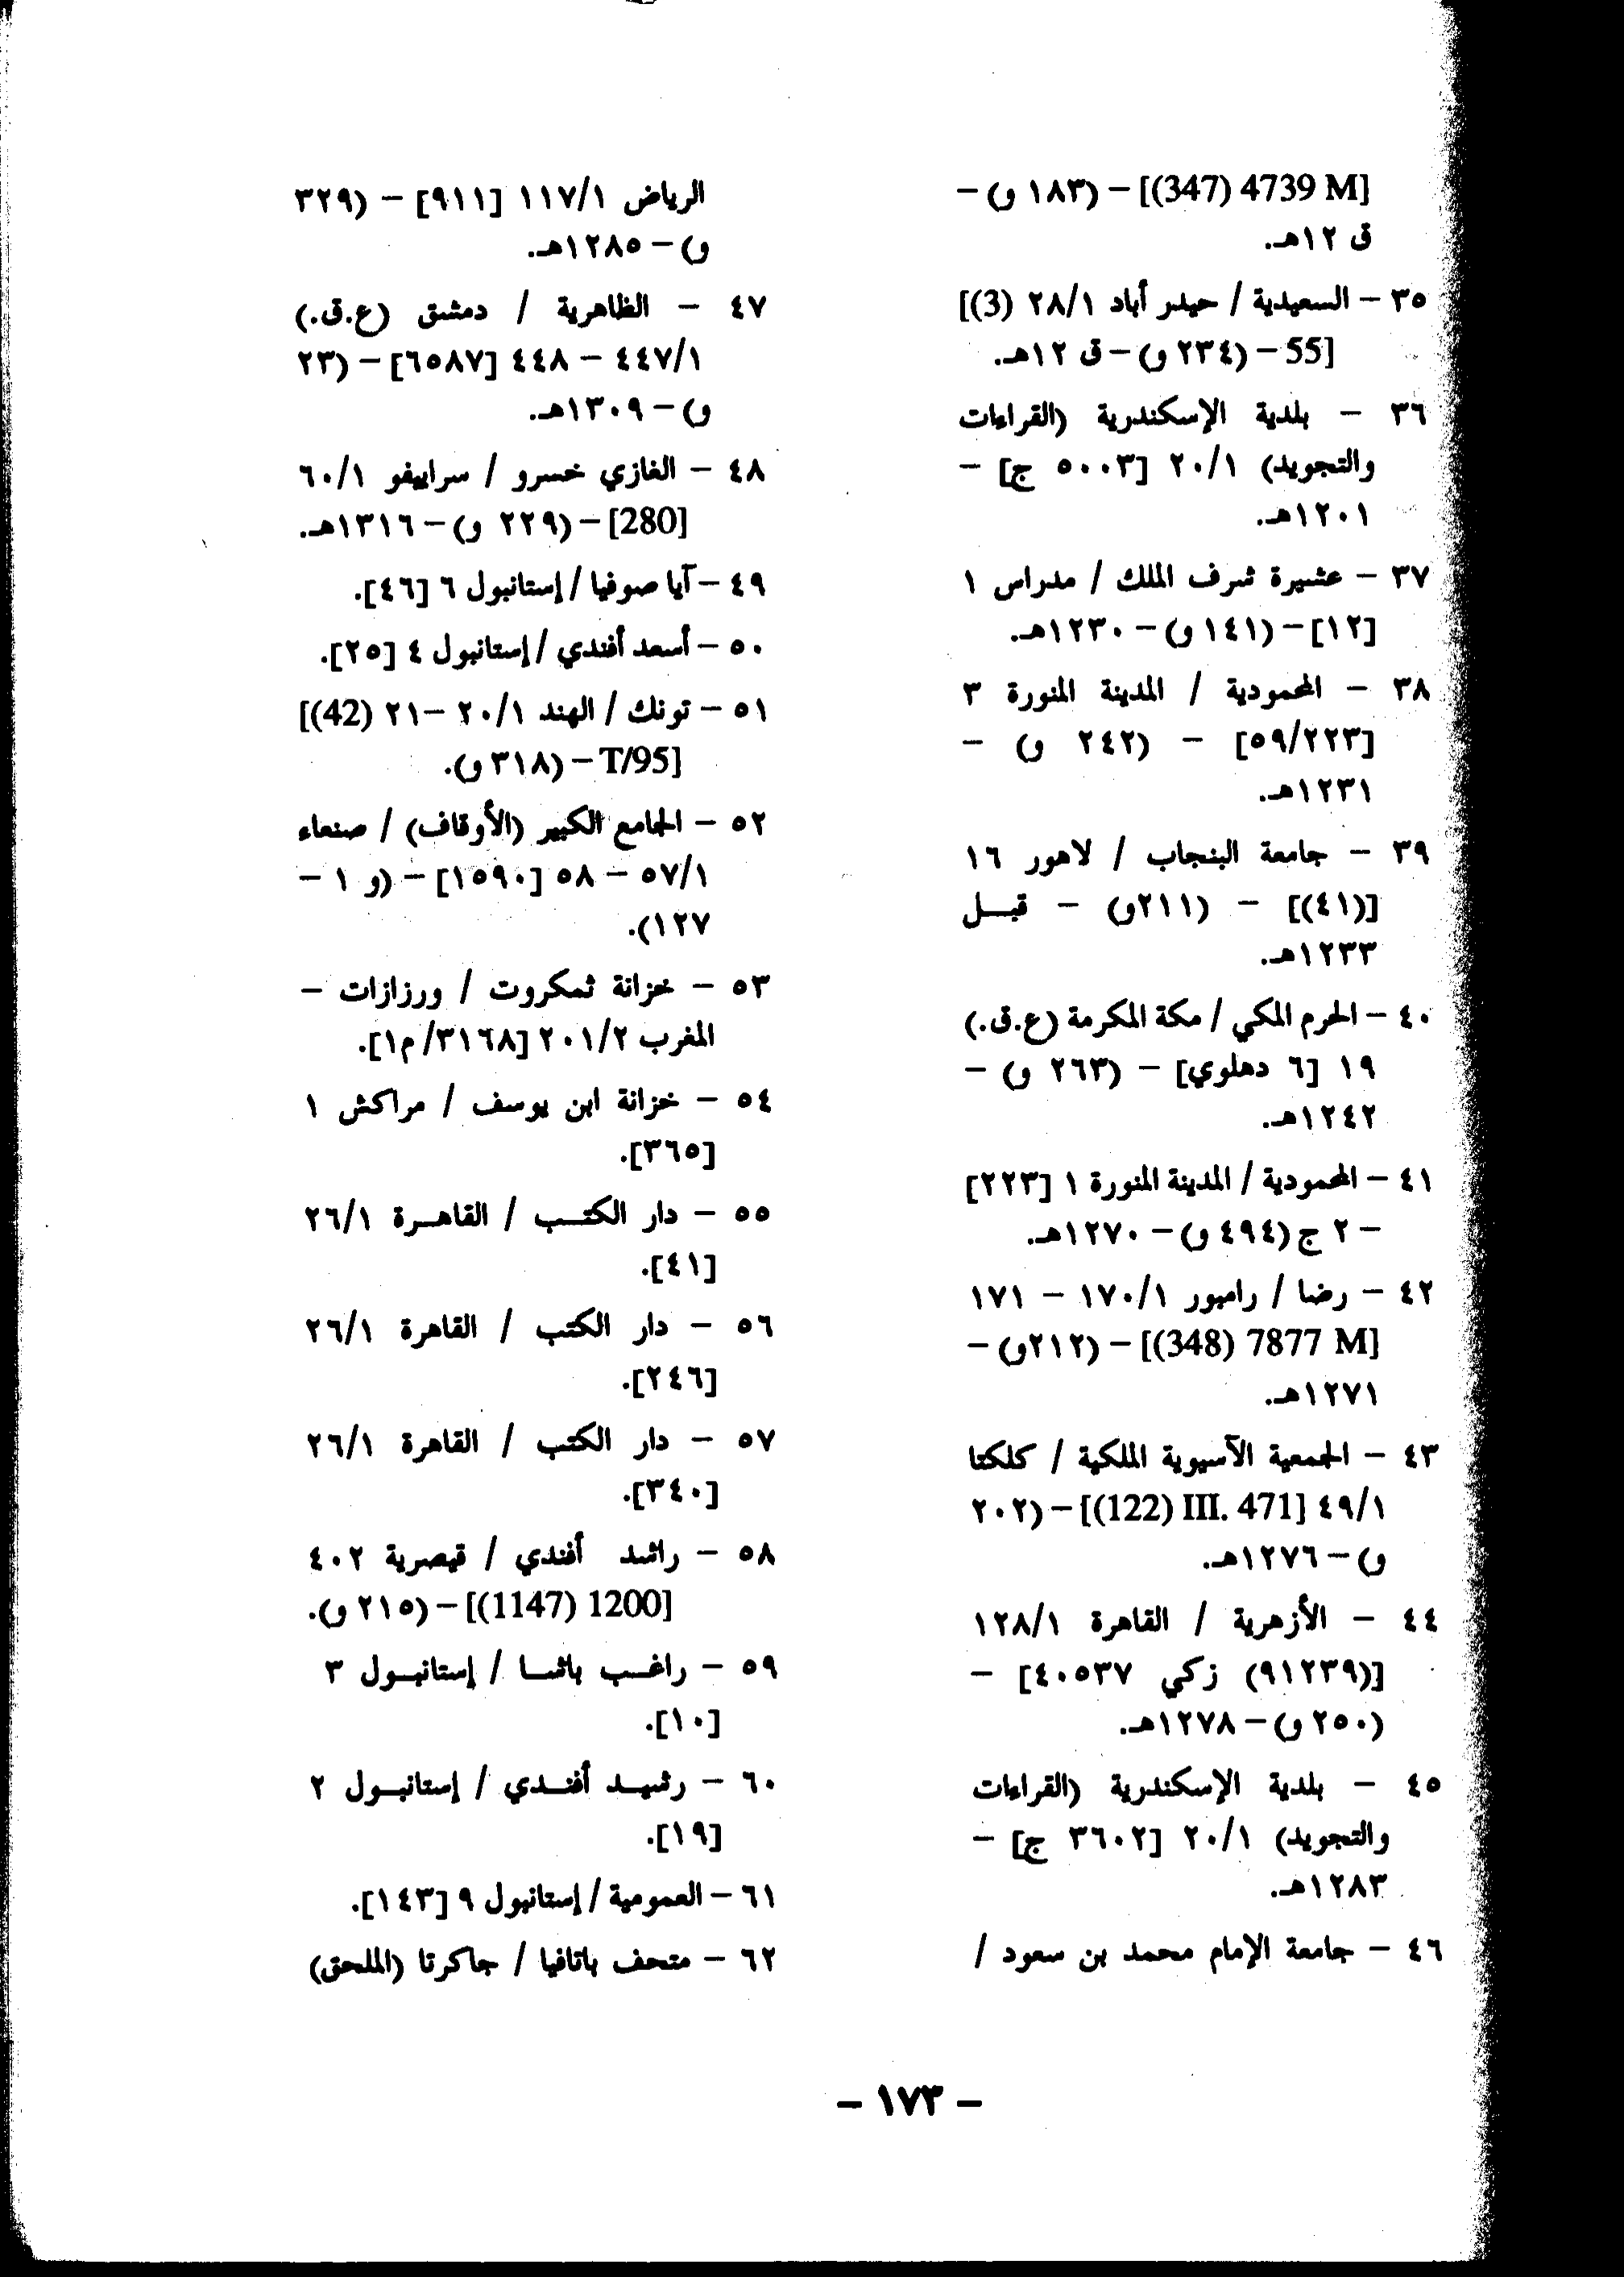 [4739 M (347)] – (١٨٣ و) –
ق ١٢هـ.
٣٥ – السعيدية / حيدر أباد ٢٨/١ [(3)
55] – (٢٣٤ و) – ق ١٢هـ.
٣٦ – بلدية الإسكندرية (القراءات
والتجويد) ٢٠/١ [٥٠٠٣ ج] –
١٢٠١هـ.
٣٧ – عشيرة شرف الملك / مدراس ١
[١٢] – (١٤١ و) – ١٢٣٠هـ.
٣٨ – المحمودية / المدينة المنورة ٣
[٥٩/٢٢٣] – (٢٤٢ و) –
١٢٣١هـ.
٣٩ – جامعة البنجاب / لاهور ١٦
[(٤١)] – (٢١١و) – قبل
١٢٣٣هـ.
٤٠ – الحرم المكي / مكة المكرمة (ع.ق.)
١٩ [٦ دهلوي] – (٢٦٣ و) –
١٢٤٢هـ.
٤١ – المحمودية / المدينة المنورة ١ [٢٢٣]
– ٢ ج (٤٩٤ و) – ١٢٧٠هـ.
٤٢ – رضا / رامبور ١٧٠/١ – ١٧١
[7877 M (348)] – (٢١٢و) –
١٢٧١هـ.
٤٣ – الجمعية الآسيوية الملكية / كلكتا
٤٩/١ [III. 471 (122)] – (٢٠٢
و) – ١٢٧٦هـ.
٤٤ – الأزهرية / القاهرة ١٢٨/١
[(٩١٢٣٩) زكي ٤٠٥٣٧] –
(٢٥٠ و) – ١٢٧٨هـ.
٤٥ – بلدية الإسكندرية (القراءات
والتجويد) ٢٠/١ [٣٦٠٢ ج] –
١٢٨٣هـ.
٤٦ – جامعة الإمام محمد بن سعود /
الرياض ١١٧/١ [٩١١] – (٣٢٩
و) – ١٢٨٥هـ.
٤٧ – الظاهرية / دمشق (ع.ق.)
٤٤٧/١ – ٤٤٨ [٦٥٨٧] – (٢٣
و) – ١٣٠٩هـ.
٤٨ – الغازي خسرو / سراييفو ٦٠/١
[280] – (٢٢٩ و) – ١٣١٦هـ.
٤٩ – آيا صوفيا / إستانبول ٦ [٤٦].
٥٠ – أسعد أفندي / إستانبول ٤ [٢٥].
٥١ – تونك / الهند ٢٠/١ – ٢١ [(42)
T/95] – (٣١٨ و).
٥٢ – الجامع الكبير (الأوقاف) / صنعاء
٥٧/١ – ٥٨ [١٥٩٠] – (و ١ –
١٢٧).
٥٣ – خزانة تمكروت / ورزازات –
المغرب ٢٠١/٢ [٣١٦٨/ م١].
٥٤ – خزانة ابن يوسف / مراكش ١
[٣٦٥].
٥٥ – دار الكتب / القاهرة ٢٦/١
[٤١].
٥٦ – دار الكتب / القاهرة ٢٦/١
[٢٤٦].
٥٧ – دار الكتب / القاهرة ٢٦/١
[٣٤٠].
٥٨ – راشد أفندي / قيصرية ٤٠٢
[1200 (1147)] – (٢١٥ و).
٥٩ – راغب باشا / إستانبول ٣
[١٠].
٦٠ – رشيد أفندي / إستانبول ٢
[١٩].
٦١ – العمومية / إستانبول ٩ [١٤٣].
٦٢ – متحف باتافيا / جاكرتا (الملحق)
– ١٧٣ –